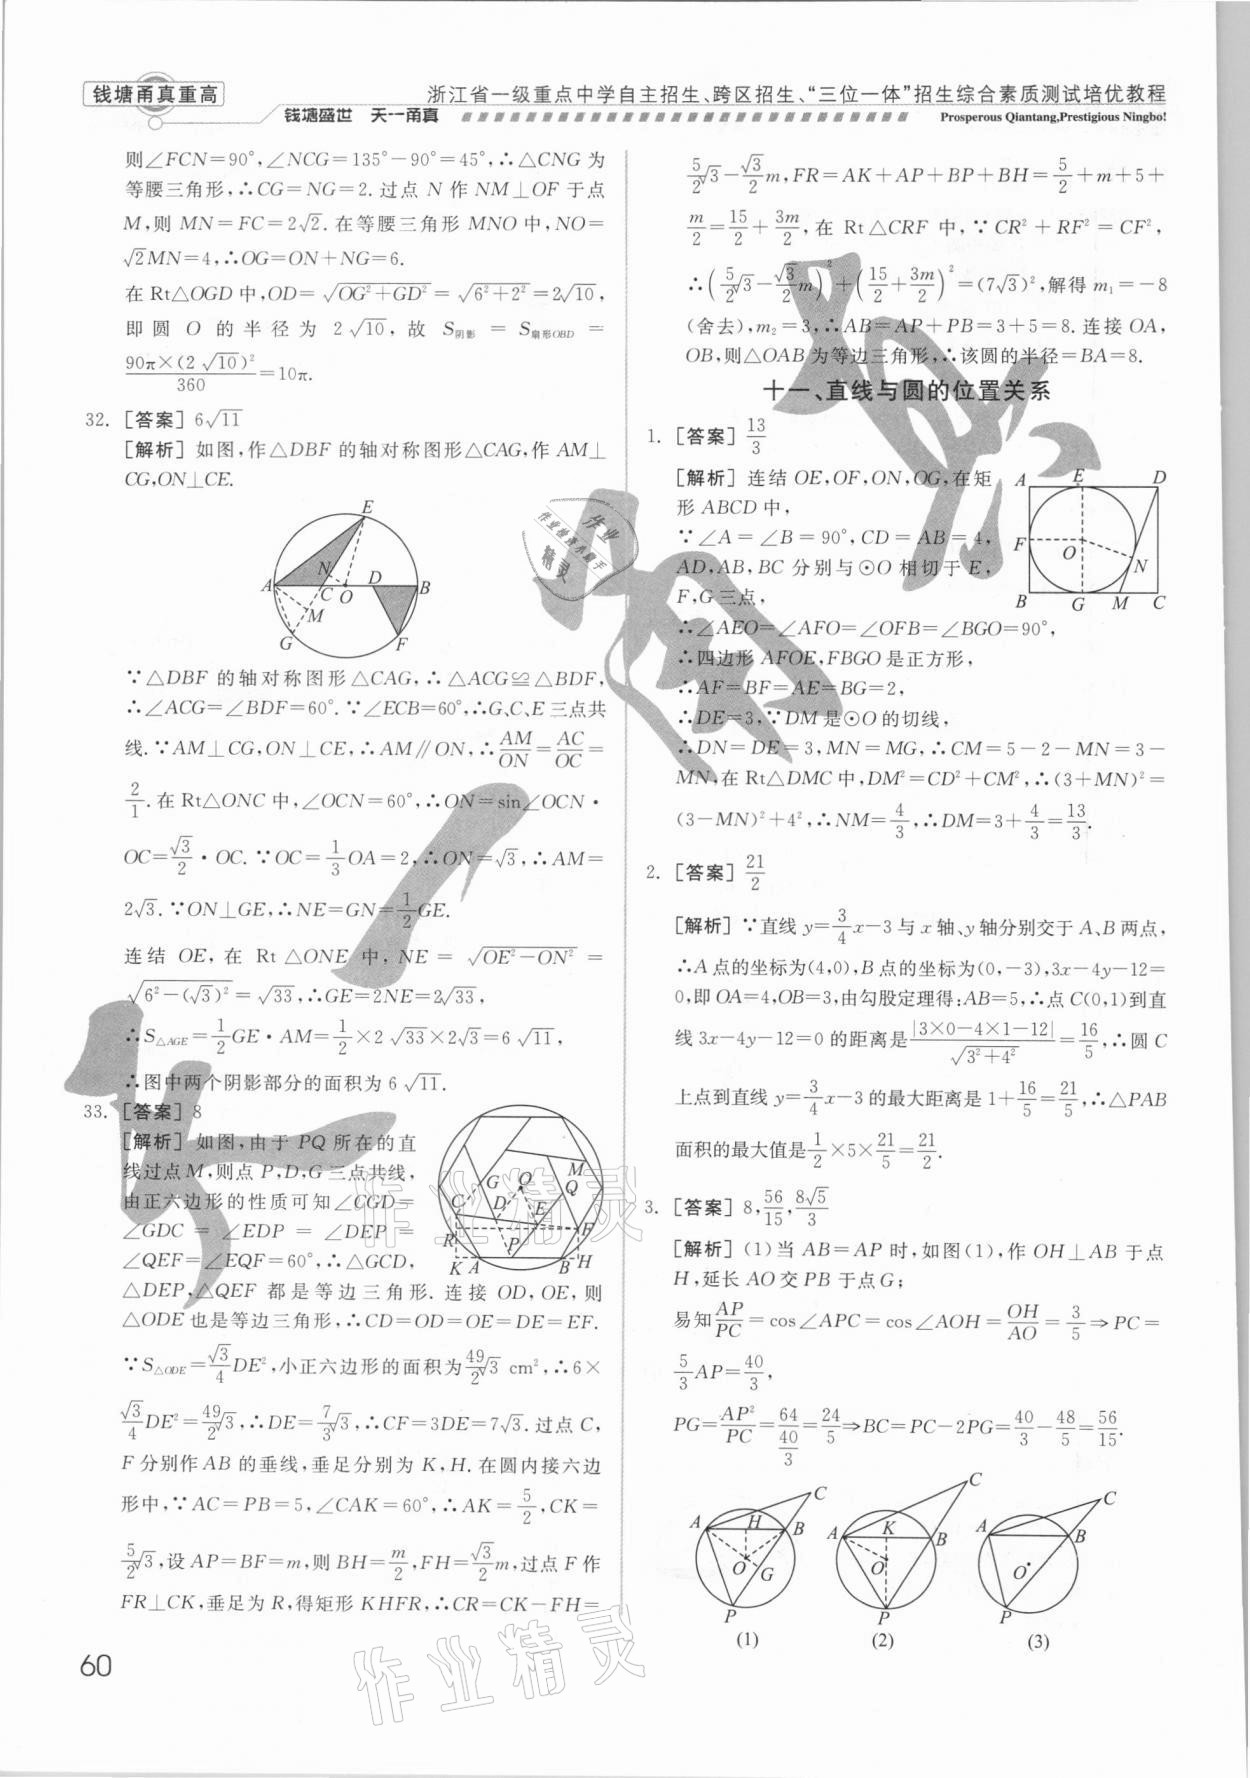 钱塘甬真重高
浙江省一级重点中学自主招生、跨区招生、“三位一体”招生综合素质测试培优教程
钱塘盛世 天一甬真
Prosperous Qiantang,Prestigious Ningbo!
则∠FCN=90°,∠NCG=135°-90°=45°,∴△CNG 为
等腰三角形,∴CG=NG=2. 过点 N 作 NM⊥OF 于点
M,则 MN=FC=2√2. 在等腰三角形 MNO 中,NO=
√2MN=4,∴OG=ON+NG=6.
在 Rt△OGD 中,OD=√(OG²+GD²)=√(6²+2²)=2√10,
即圆 O 的半径为 2√10,故 S阴影=S扇形OBD=
90π×(2√10)²/360=10π.
32. [答案] 6√11
[解析] 如图,作△DBF 的轴对称图形△CAG,作 AM⊥
CG,ON⊥CE.
E
N
D
A
C
O
B
M
G
F
∵△DBF 的轴对称图形△CAG,∴△ACG≌△BDF,
∴∠ACG=∠BDF=60°. ∵∠ECB=60°,∴G、C、E 三点共
线. ∵AM⊥CG,ON⊥CE,∴AM∥ON,∴AM/ON=AC/OC=
2/1. 在 Rt△ONC 中,∠OCN=60°,∴ON=sin∠OCN·
OC=√3/2·OC. ∵OC=1/3OA=2,∴ON=√3,∴AM=
2√3. ∵ON⊥GE,∴NE=GN=1/2GE.
连结 OE,在 Rt△ONE 中,NE=√(OE²-ON²)=
√(6²-(√3)²)=√33,∴GE=2NE=2√33,
∴S△AGE=1/2GE·AM=1/2×2√33×2√3=6√11,
∴图中两个阴影部分的面积为 6√11.
33. [答案] 8
[解析] 如图,由于 PQ 所在的直
线过点 M,则点 P,D,G 三点共线,
由正六边形的性质可知∠CGD=
∠GDC=∠EDP=∠DEP=
∠QEF=∠EQF=60°,∴△GCD,
△DEP,△QEF 都是等边三角形. 连接 OD,OE,则
M
G
O
Q
C
D
E
F
R
P
K
A
B
H
△ODE 也是等边三角形,∴CD=OD=OE=DE=EF.
∵S△ODE=√3/4DE²,小正六边形的面积为49/2√3 cm²,∴6×
√3/4DE²=49/2√3,∴DE=7/3√3,∴CF=3DE=7√3. 过点 C,
F 分别作 AB 的垂线,垂足分别为 K,H. 在圆内接六边
形中,∵AC=PB=5,∠CAK=60°,∴AK=5/2,CK=
5/2√3,设 AP=BF=m,则 BH=m/2,FH=√3/2m,过点 F 作
FR⊥CK,垂足为 R,得矩形 KHFR,∴CR=CK-FH=
60
5/2√3-√3/2m,FR=AK+AP+BP+BH=5/2+m+5+
m/2=15/2+3m/2,在 Rt△CRF 中,∵CR²+RF²=CF²,
∴(5/2√3-√3/2m)²+(15/2+3m/2)²=(7√3)²,解得 m₁=-8
(舍去),m₂=3,∴AB=AP+PB=3+5=8. 连接 OA,
OB,则△OAB 为等边三角形,∴该圆的半径=BA=8.
十一、直线与圆的位置关系
1. [答案] 13/3
[解析] 连结 OE,OF,ON,OG,在矩
形 ABCD 中,
∵∠A=∠B=90°,CD=AB=4,
AD,AB,BC 分别与⊙O 相切于 E,
F,G 三点,
A
E
D
F
O
N
B
G
M
C
∴∠AEO=∠AFO=∠OFB=∠BGO=90°,
∴四边形 AFOE,FBGO 是正方形,
∴AF=BF=AE=BG=2,
∴DE=3,∵DM 是⊙O 的切线,
∴DN=DE=3,MN=MG,∴CM=5-2-MN=3-
MN,在 Rt△DMC 中,DM²=CD²+CM²,∴(3+MN)²=
(3-MN)²+4²,∴NM=4/3,∴DM=3+4/3=13/3.
2. [答案] 21/2
[解析] ∵直线 y=3/4x-3 与 x 轴、y 轴分别交于 A、B 两点,
∴A 点的坐标为(4,0),B 点的坐标为(0,-3),3x-4y-12=
0,即 OA=4,OB=3,由勾股定理得:AB=5,∴点 C(0,1)到直
线 3x-4y-12=0 的距离是|3×0-4×1-12|/√(3²+4²)=16/5,∴圆 C
上点到直线 y=3/4x-3 的最大距离是 1+16/5=21/5,∴△PAB
面积的最大值是 1/2×5×21/5=21/2.
3. [答案] 8,56/15,8√5/3
[解析] (1)当 AB=AP 时,如图(1),作 OH⊥AB 于点
H,延长 AO 交 PB 于点 G;
易知AP/PC=cos∠APC=cos∠AOH=OH/AO=3/5⇒PC=
5/3AP=40/3,
PG=AP²/PC=64/(40/3)=24/5⇒BC=PC-2PG=40/3-48/5=56/15.
A
H
B
C
O
G
P
(1)
A
K
B
C
O
P
(2)
A
B
C
O
P
(3)
作业精灵
作业精灵
作业
作业检查小助手
精灵